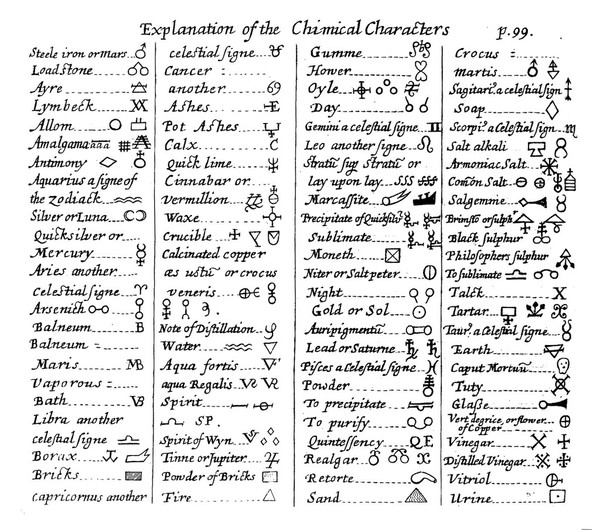 Explanation of the Chimical Characters p.99.
Steele iron or Mars
Loadstone
Ayre
Lymbeck
Allom
Amalgama aaa
Antimony
Aquarius a signe of
the zodiack
Silver or Luna
Quicksilver or
Mercury
Aries another
Celestial signe
Arsenick
Balneum B
Balneum
Maris MB
Vaporous
Bath VB
Libra another
celestial signe
Borax
Bricks
Capricornus another
celestial signe
Cancer
another 69
Ashes E
Pot Ashes
Calx C
Quick lime
Cinnabar or
Vermillion
Waxe
Crucible
Calcinated copper
æs ustū or crocus
veneris
Note of Distillation
Water
Aqua fortis
aqua Regalis
Spirit
SP.
Spirit of Wyn
Tinne or Jupiter
Powder of Bricks
Fire
Gumme
Hower
Oyle
Day
Gemini a celestial signe
Leo another signe
Stratū sup Stratū or
lay upon lay SSS
Marcassite
Precipitate of Quicksilv
Sublimate
Moneth
Niter or Salt peter
Night
Gold or Sol
Auripigmentū
Lead or Saturne
Pisces a Celestial signe
Powder
To precipitate
To purify
Quintessency QE
Realgar
Retorte
Sand
Crocus
martis
Sagitari. a celestial sign
Soap
Scorpi. a Celestial sign
Salt alkali
Armoniac Salt
Comōn Salt
Salgemme
Brimsto or sulph
Black sulphur
Philosophers sulphur
To sublimate
Talck X
Tartar
Taur. a Celestial signe
Earth
Caput Mortuū
Tuty
Glasse
Vert degrice, or flower
of Copper
Vinegar
Distilled Vinegar
Vitriol
Urine